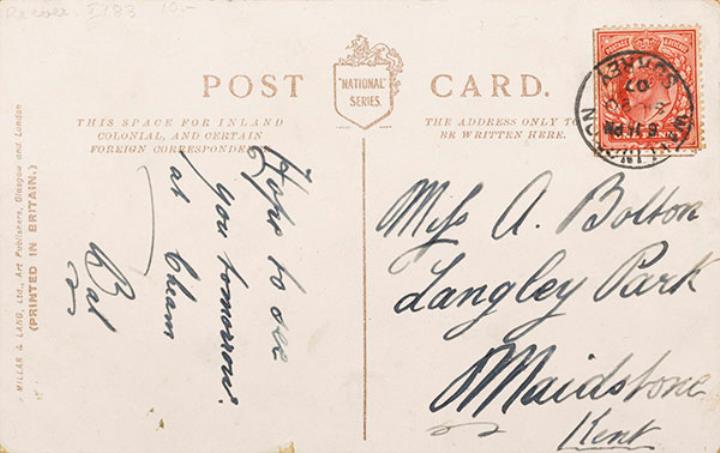 Recvee. I783 10.-
POST CARD.
"NATIONAL"
SERIES.
THIS SPACE FOR INLAND
COLONIAL, AND CERTAIN
FOREIGN CORRESPONDENCE
THE ADDRESS ONLY TO
BE WRITTEN HERE.
POSTAGE REVENUE
ONE PENNY
SURREY
07
6.15 PM
Hope to see
you tomorrow.
at Cheam
Miss A. Bolton
Langley Park
Maidstone
Kent
MILLAR & LANG, Ltd., Art Publishers, Glasgow and London
(PRINTED IN BRITAIN.)